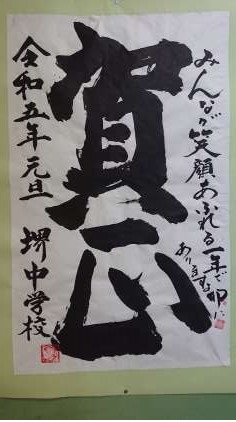 みんなが笑顔あふれる一年で
ありますように
賀正
令和五年 元旦 堺中学校